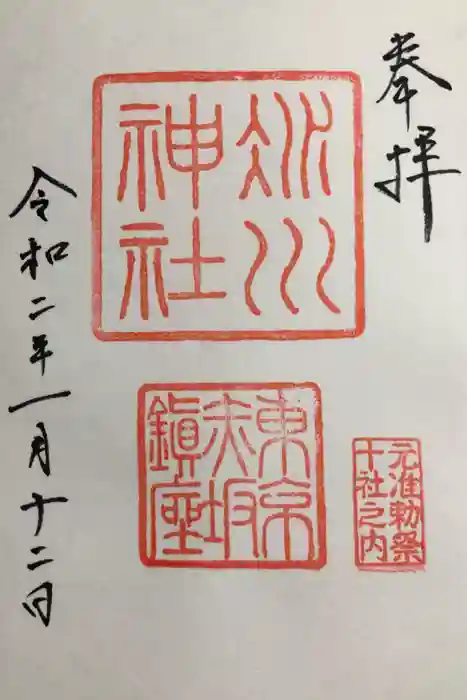 奉拝
氷川
神社
東京
赤坂
鎮座
元准勅祭
十社之内
令和二年一月十二日